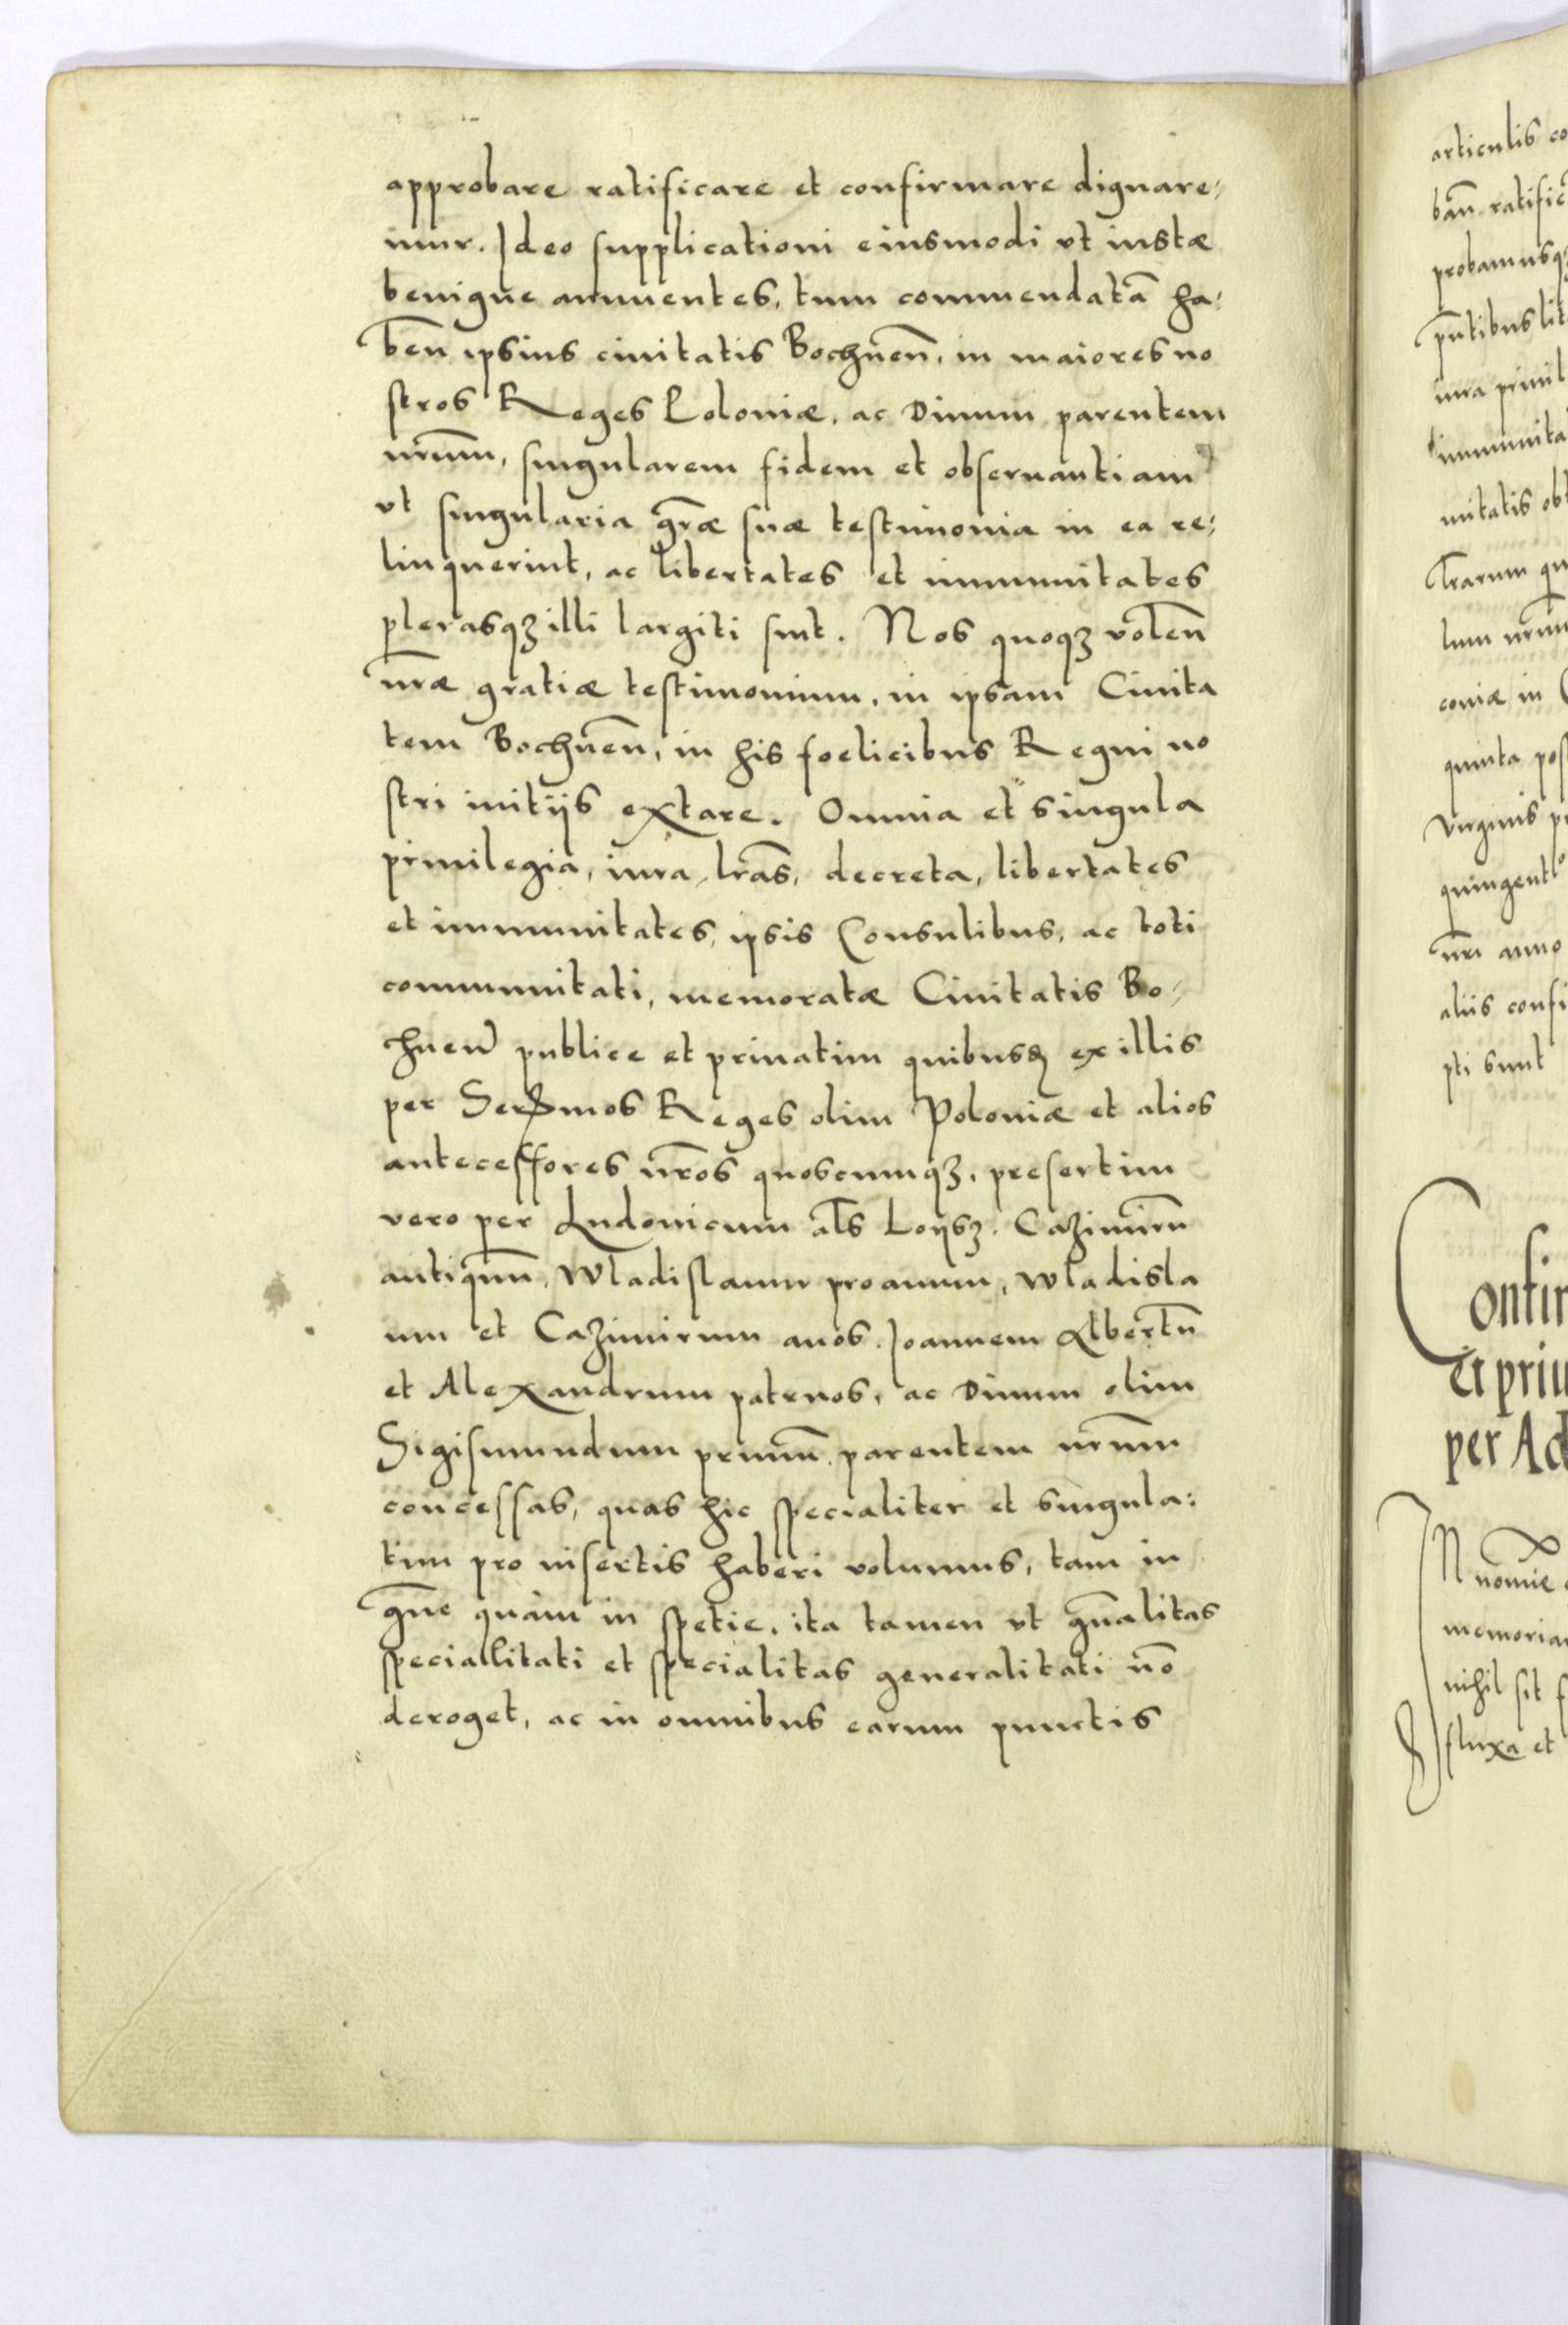 approbare ratificare et confirmare dignare⸗
mur. Ideo supplicationi eiusmodi vt iustæ
benigne annuentes, tum commendatā ha⸗
beñ ipsius ciuitatis Bochneñ, in maiores no
stros Reges Poloniæ, ac Diuum parentem
nrm̄, singularem fidem et obseruantiam
vt singularia gr̄æ suæ testimonia in ea re⸗
linquerint, ac libertates et immunitates
plerasqꝫ illi largiti sint. Nos quoqꝫ voleñ
nr̄æ gratiæ testimonium, in ipsam Ciuita
tem Bochneñ, in his foelicibus Regni no
stri initijs extare. Omnia et singula
priuilegia, iura, lrãs, decreta, libertates
et immunitates, ipsis Consulibus, ac toti
communitati, memoratæ Ciuitatis Bo⸗
chneñ publice et priuatim quibusꝗ ex illis
per Serꝰmos Reges olim Poloniæ et alios
antecessores nr̄os quoscumqꝫ, presertim
vero per Ludouicum al̄s Loijsꝫ. Cazimirū
antiquū, Wladislaum proauum, Wladisla
um et Cazimirum auos. Joannem Albertū
et Alexandrum patruos, ac Diuum olim
Sigismundum primū parentem nrm̄
concessas, quas hic specialiter et singula⸗
tim pro insertis haberi volumus, tam in
gñe quàm in spetie. ita tamen vt gñalitas
speciallitati et specialitas generalitati nō
deroget, ac in omnibus earum punctis
articulis co
bañ ratific
probamusq
pñtibus lit
iura priuil
immunita
nitatis obt
Lr̄arum qu
lum nrm̄
coniæ in C
quinta pos
Virginis p
quingent
nr̄i anno
aliis confi
pti sunt
Confir
Et priu
per Ad
IN nomie
memoria
nihil sit f
fluxa et